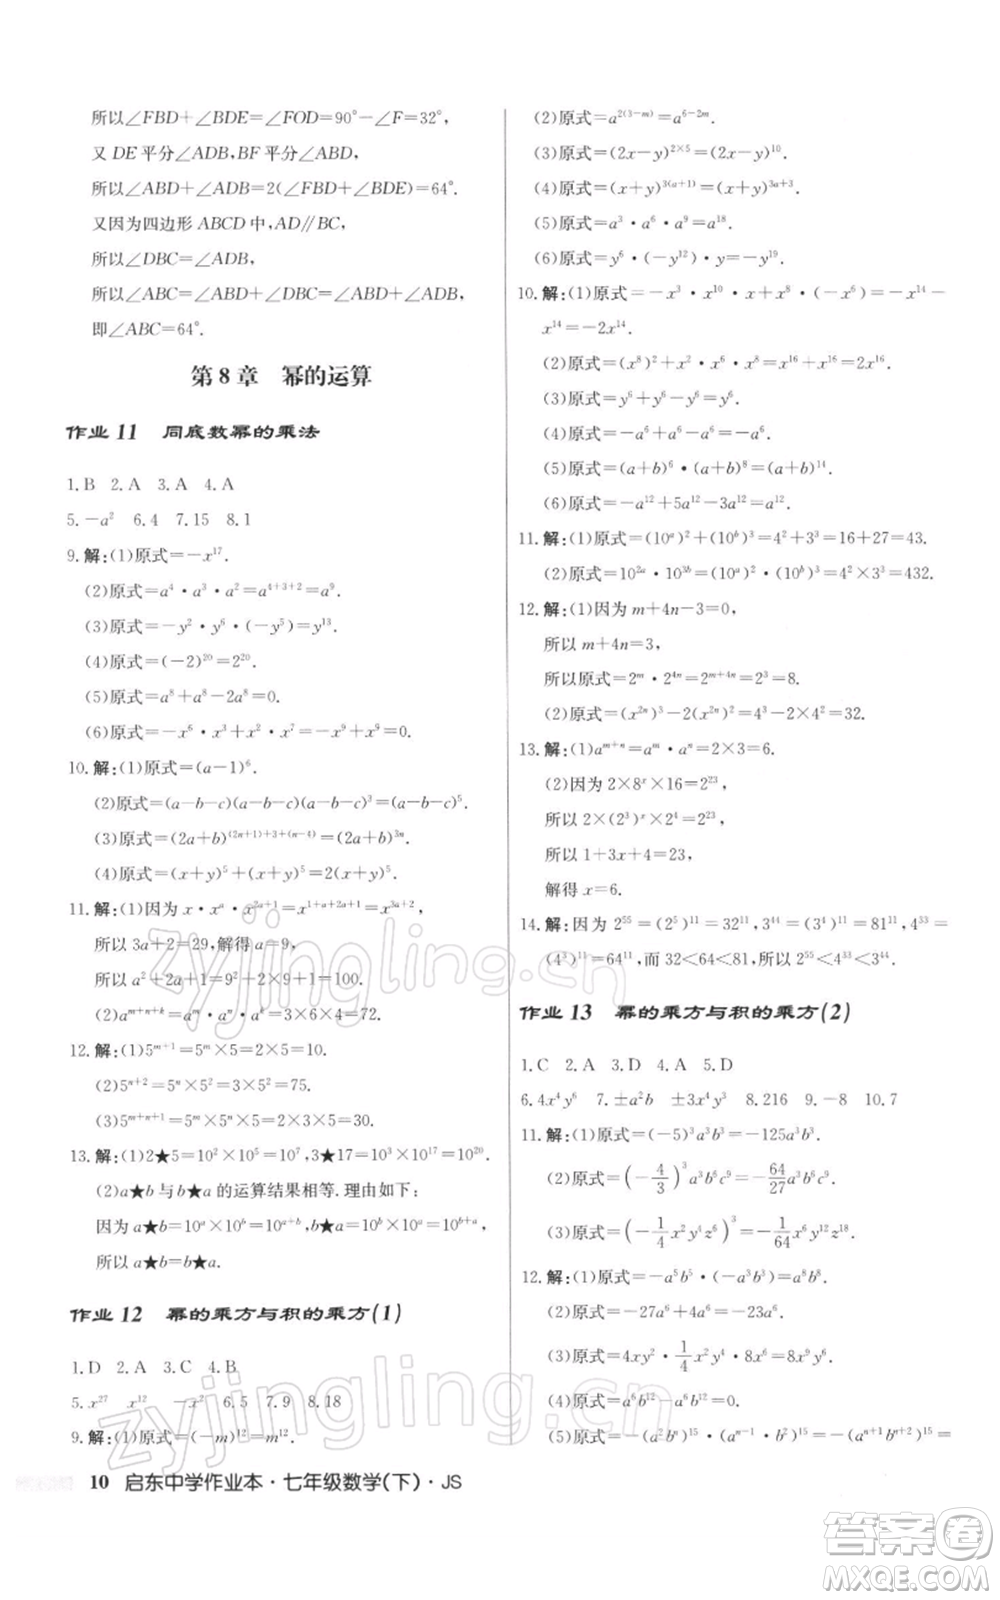 所以∠FBD+∠BDE=∠FOD=90°-∠F=32°,
又 DE 平分∠ADB,BF 平分∠ABD,
所以∠ABD+∠ADB=2(∠FBD+∠BDE)=64°.
又因为四边形 ABCD 中,AD∥BC,
所以∠DBC=∠ADB,
所以∠ABC=∠ABD+∠DBC=∠ABD+∠ADB,
即∠ABC=64°.
第 8 章 幂的运算
作业 11 同底数幂的乘法
1.B 2.A 3.A 4.A
5.-a² 6.4 7.15 8.1
9.解:(1)原式=-x¹⁷.
(2)原式=a⁴·a³·a²=a⁴⁺³⁺²=a⁹.
(3)原式=-y²·y⁶·(-y⁵)=y¹³.
(4)原式=(-2)²⁰=2²⁰.
(5)原式=a⁸+a⁸-2a⁸=0.
(6)原式=-x⁶·x³+x²·x⁷=-x⁹+x⁹=0.
10.解:(1)原式=(a-1)⁶.
(2)原式=(a-b-c)(a-b-c)(a-b-c)³=(a-b-c)⁵.
(3)原式=(2a+b)⁽²ⁿ⁺¹⁾⁺³⁺⁽ⁿ⁻⁴⁾=(2a+b)³ⁿ.
(4)原式=(x+y)⁵+(x+y)⁵=2(x+y)⁵.
11.解:(1)因为 x·xᵃ·x²ᵃ⁺¹=x¹⁺ᵃ⁺²ᵃ⁺¹=x³ᵃ⁺²,
所以 3a+2=29,解得 a=9,
所以 a²+2a+1=9²+2×9+1=100.
(2)aᵐ⁺ⁿ⁺ᵏ=aᵐ·aⁿ·aᵏ=3×6×4=72.
12.解:(1)5ᵐ⁺¹=5ᵐ×5=2×5=10.
(2)5ⁿ⁺²=5ⁿ×5²=3×5²=75.
(3)5ᵐ⁺ⁿ⁺¹=5ᵐ×5ⁿ×5=2×3×5=30.
13.解:(1)2★5=10²×10⁵=10⁷,3★17=10³×10¹⁷=10²⁰.
(2)a★b 与 b★a 的运算结果相等.理由如下:
因为 a★b=10ᵃ×10ᵇ=10ᵃ⁺ᵇ,b★a=10ᵇ×10ᵃ=10ᵇ⁺ᵃ,
所以 a★b=b★a.
作业 12 幂的乘方与积的乘方(1)
1.D 2.A 3.C 4.B
5.x²⁷ x¹² -x² 6.5 7.9 8.18
9.解:(1)原式=m³ˣ⁴=m¹².
(2)原式=a²⁽³⁻ᵐ⁾=a⁶⁻²ᵐ.
(3)原式=(2x-y)²ˣ⁵=(2x-y)¹⁰.
(4)原式=(x+y)³⁽ᵃ⁺¹⁾=(x+y)³ᵃ⁺³.
(5)原式=a³·a⁶·a⁹=a¹⁸.
(6)原式=y⁶·(-y¹²)·y=-y¹⁹.
10.解:(1)原式=-x³·x¹⁰·x+x⁸·(-x⁶)=-x¹⁴-
x¹⁴=-2x¹⁴.
(2)原式=(x⁸)²+x⁸·x⁸=x¹⁶+x¹⁶=2x¹⁶.
(3)原式=y⁶+y⁶-y⁶=y⁶.
(4)原式=a⁸+a⁸=2a⁸.
(5)原式=(a+b)⁶·(a+b)⁸=(a+b)¹⁴.
(6)原式=-a¹²+5a¹²-3a¹²=a¹².
11.解:(1)原式=(10ᵃ)²+(10ᵇ)³=4²+3³=16+27=43.
(2)原式=10²ᵃ·10³ᵇ=(10ᵃ)²×(10ᵇ)³=4²×3³=432.
12.解:(1)因为 m+4n-3=0,
所以 m+4n=3,
所以原式=2ᵐ·2⁴ⁿ=2ᵐ⁺⁴ⁿ=2³=8.
(2)原式=(x²ⁿ)³-2(x²ⁿ)²=4³-2×4²=32.
13.解:(1)aᵐ⁺ⁿ=aᵐ·aⁿ=2×3=6.
(2)因为 2×8ˣ×16=2²³,
所以 2×(2³)ˣ×2⁴=2²³,
所以 1+3x+4=23,
解得 x=6.
14.解:因为 2⁵⁵=(2⁵)¹¹=32¹¹,3⁴⁴=(3⁴)¹¹=81¹¹,4³³=
(4³)¹¹=64¹¹,而 32<64<81,所以 2⁵⁵<4³³<3⁴⁴.
作业 13 幂的乘方与积的乘方(2)
1.C 2.A 3.D 4.A 5.D
6.4x⁴y⁶ 7.±a²b ±3x⁴y³ 8.216 9.-8 10.7
11.解:(1)原式=(-5)³a³b³=-125a³b³.
(2)原式=(-4/3)³a³b⁶c⁹=-64/27a³b⁶c⁹.
(3)原式=(-1/4x²y⁴z⁶)³=-1/64x⁶y¹²z¹⁸.
12.解:(1)原式=-a⁵b⁵·(-a³b)=a⁸b⁶.
(2)原式=-27a⁶+4a⁶=-23a⁶.
(3)原式=4xy²·1/4x²y⁴=x³y⁶.
(4)原式=a⁶b¹²-a⁶b¹²=0.
(5)原式=-a³ⁿb⁶ⁿ+a³ⁿb⁶ⁿ=0.
10 启东中学作业本·七年级数学(下)·JS
zyjingling.cn
zyjingling.cn
答案卷
MXQE.COM